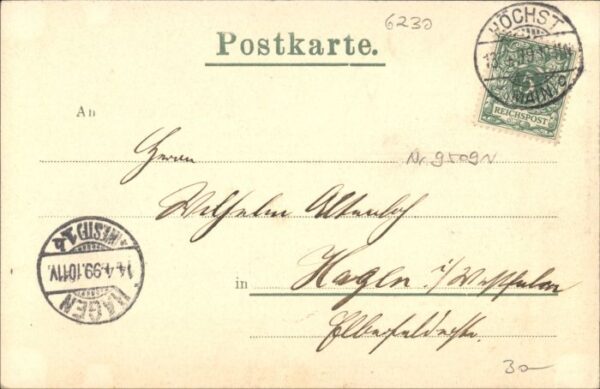 6230
Postkarte.
HÖCHST
MAIN
5
REICHSPOST
An
Herrn
Nr. 9509N
Wilhelm Altenloh
in Hagen i/Westfalen
Elberfelderstr.
HAGEN
14.4.99.10-11V.
(WESTF) 1
30